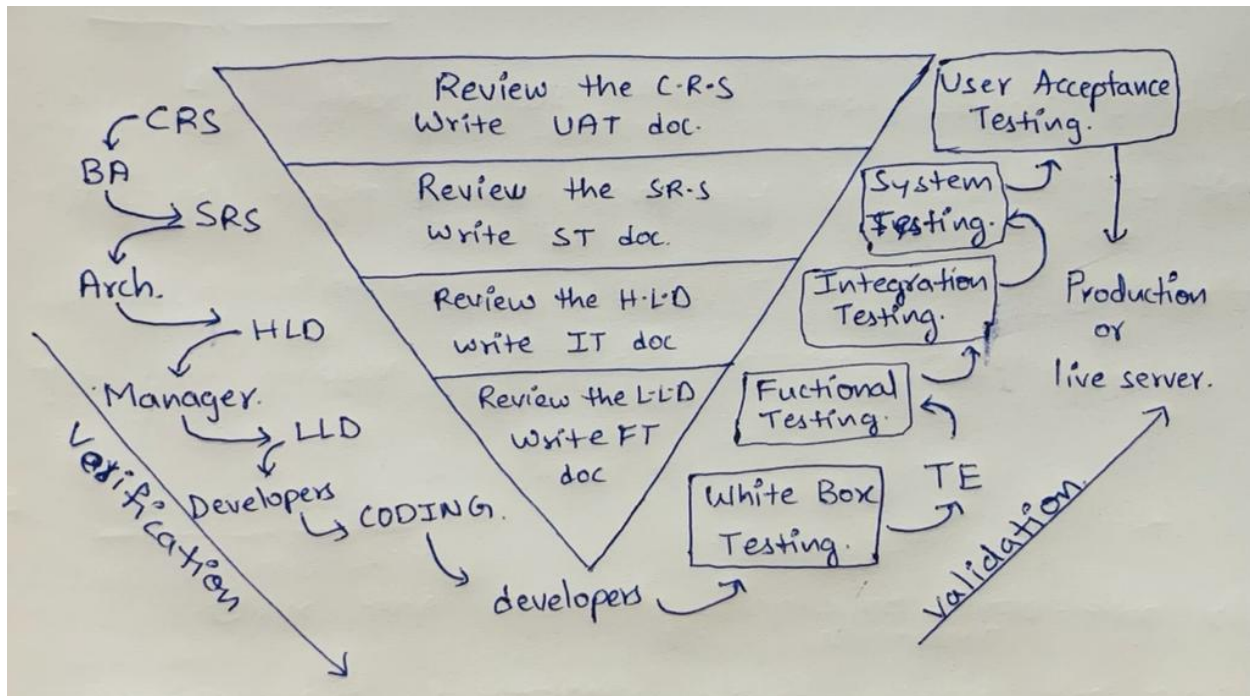 CRS
BA
SRS
Arch.
HLD
Manager.
LLD
Developers
CODING.
developers
Verification
Review the C.R.S
Write UAT doc.
Review the SR.S
Write ST doc.
Review the H.L.D
write IT doc
Review the L.L.D
Write FT
doc
White Box
Testing.
TE
Fuctional
Testing.
Integration
Testing.
System
Testing.
User Acceptance
Testing.
Production
or
live server.
Validation